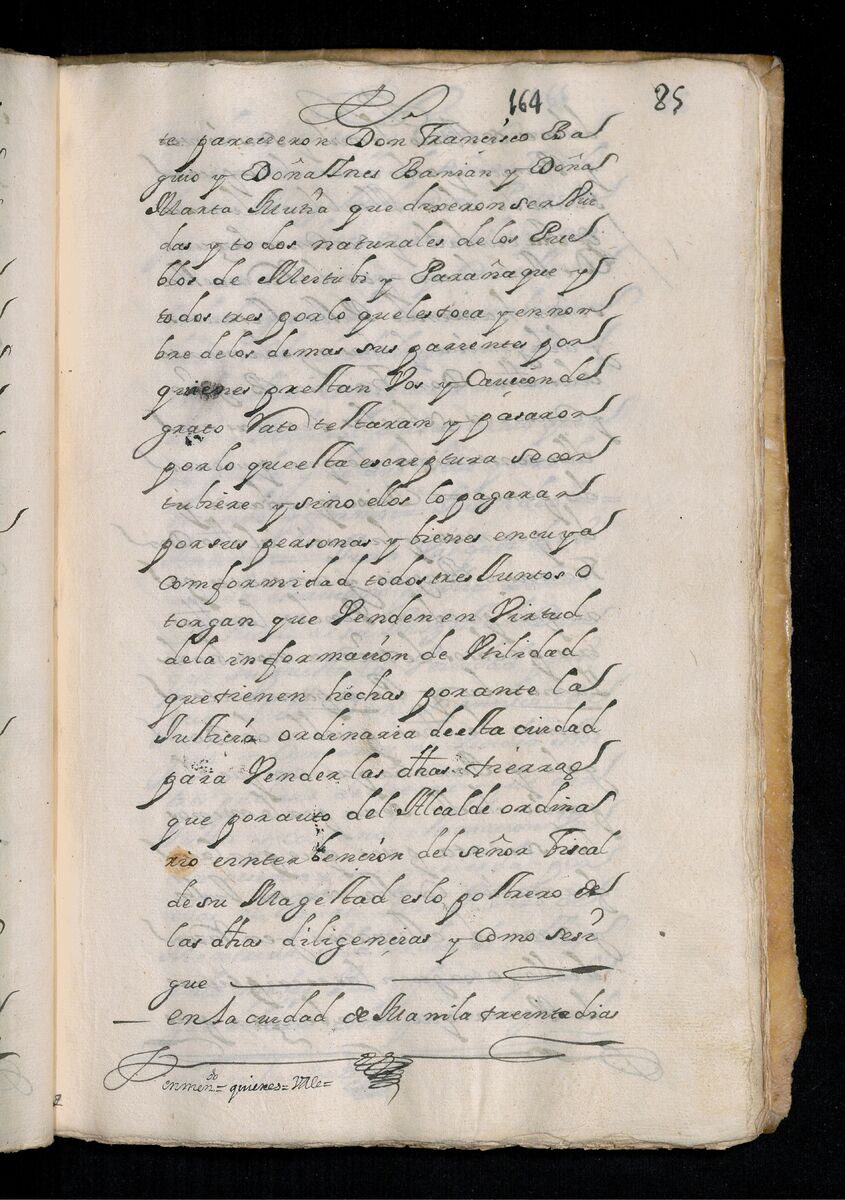 164 85
te parecieron Don Francisco Ba
guio y Doña Ines Banian y Doña
Marta Muña que dixeron ser Viu
das y todos naturales de los Pue
blos de Meitubi y Parañaque y
todos tres por lo que les toca y en nom
bre de los demas sus parientes por
quienes prestan Vos y Caucion de
grato Vato testaran y pasaron
por lo que esta escreptura se con
tubiere y sino ellos lo pagaran
por sus personas y bienes en cuya
comformidad todos tres Juntos o
torgan que Venden en Virtud
de la informacion de Vtilidad
que tienen hechas por ante la
Justicia ordinaria de esta ciudad
para Vender las dhas tierras
que por auto del Alcalde ordina
rio e interbencion del señor Fiscal
de su Magestad es lo postrero de
las dhas diligencias y como se si
gue
en la ciudad de Manila treinta dias
enmendo = quienes = Vale =